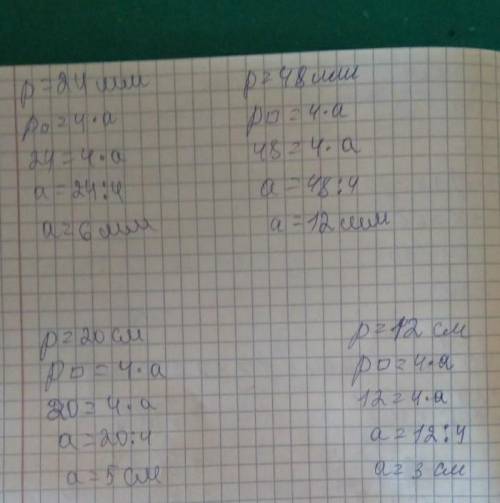 p=24мм
p□=4·a
24=4·a
a=24:4
a=6мм
p=48мм
p□=4·a
48=4·a
a=48:4
a=12мм
p=20см
p□=4·a
20=4·a
a=20:4
a=5см
p=12см
p□=4·a
12=4·a
a=12:4
a=3см